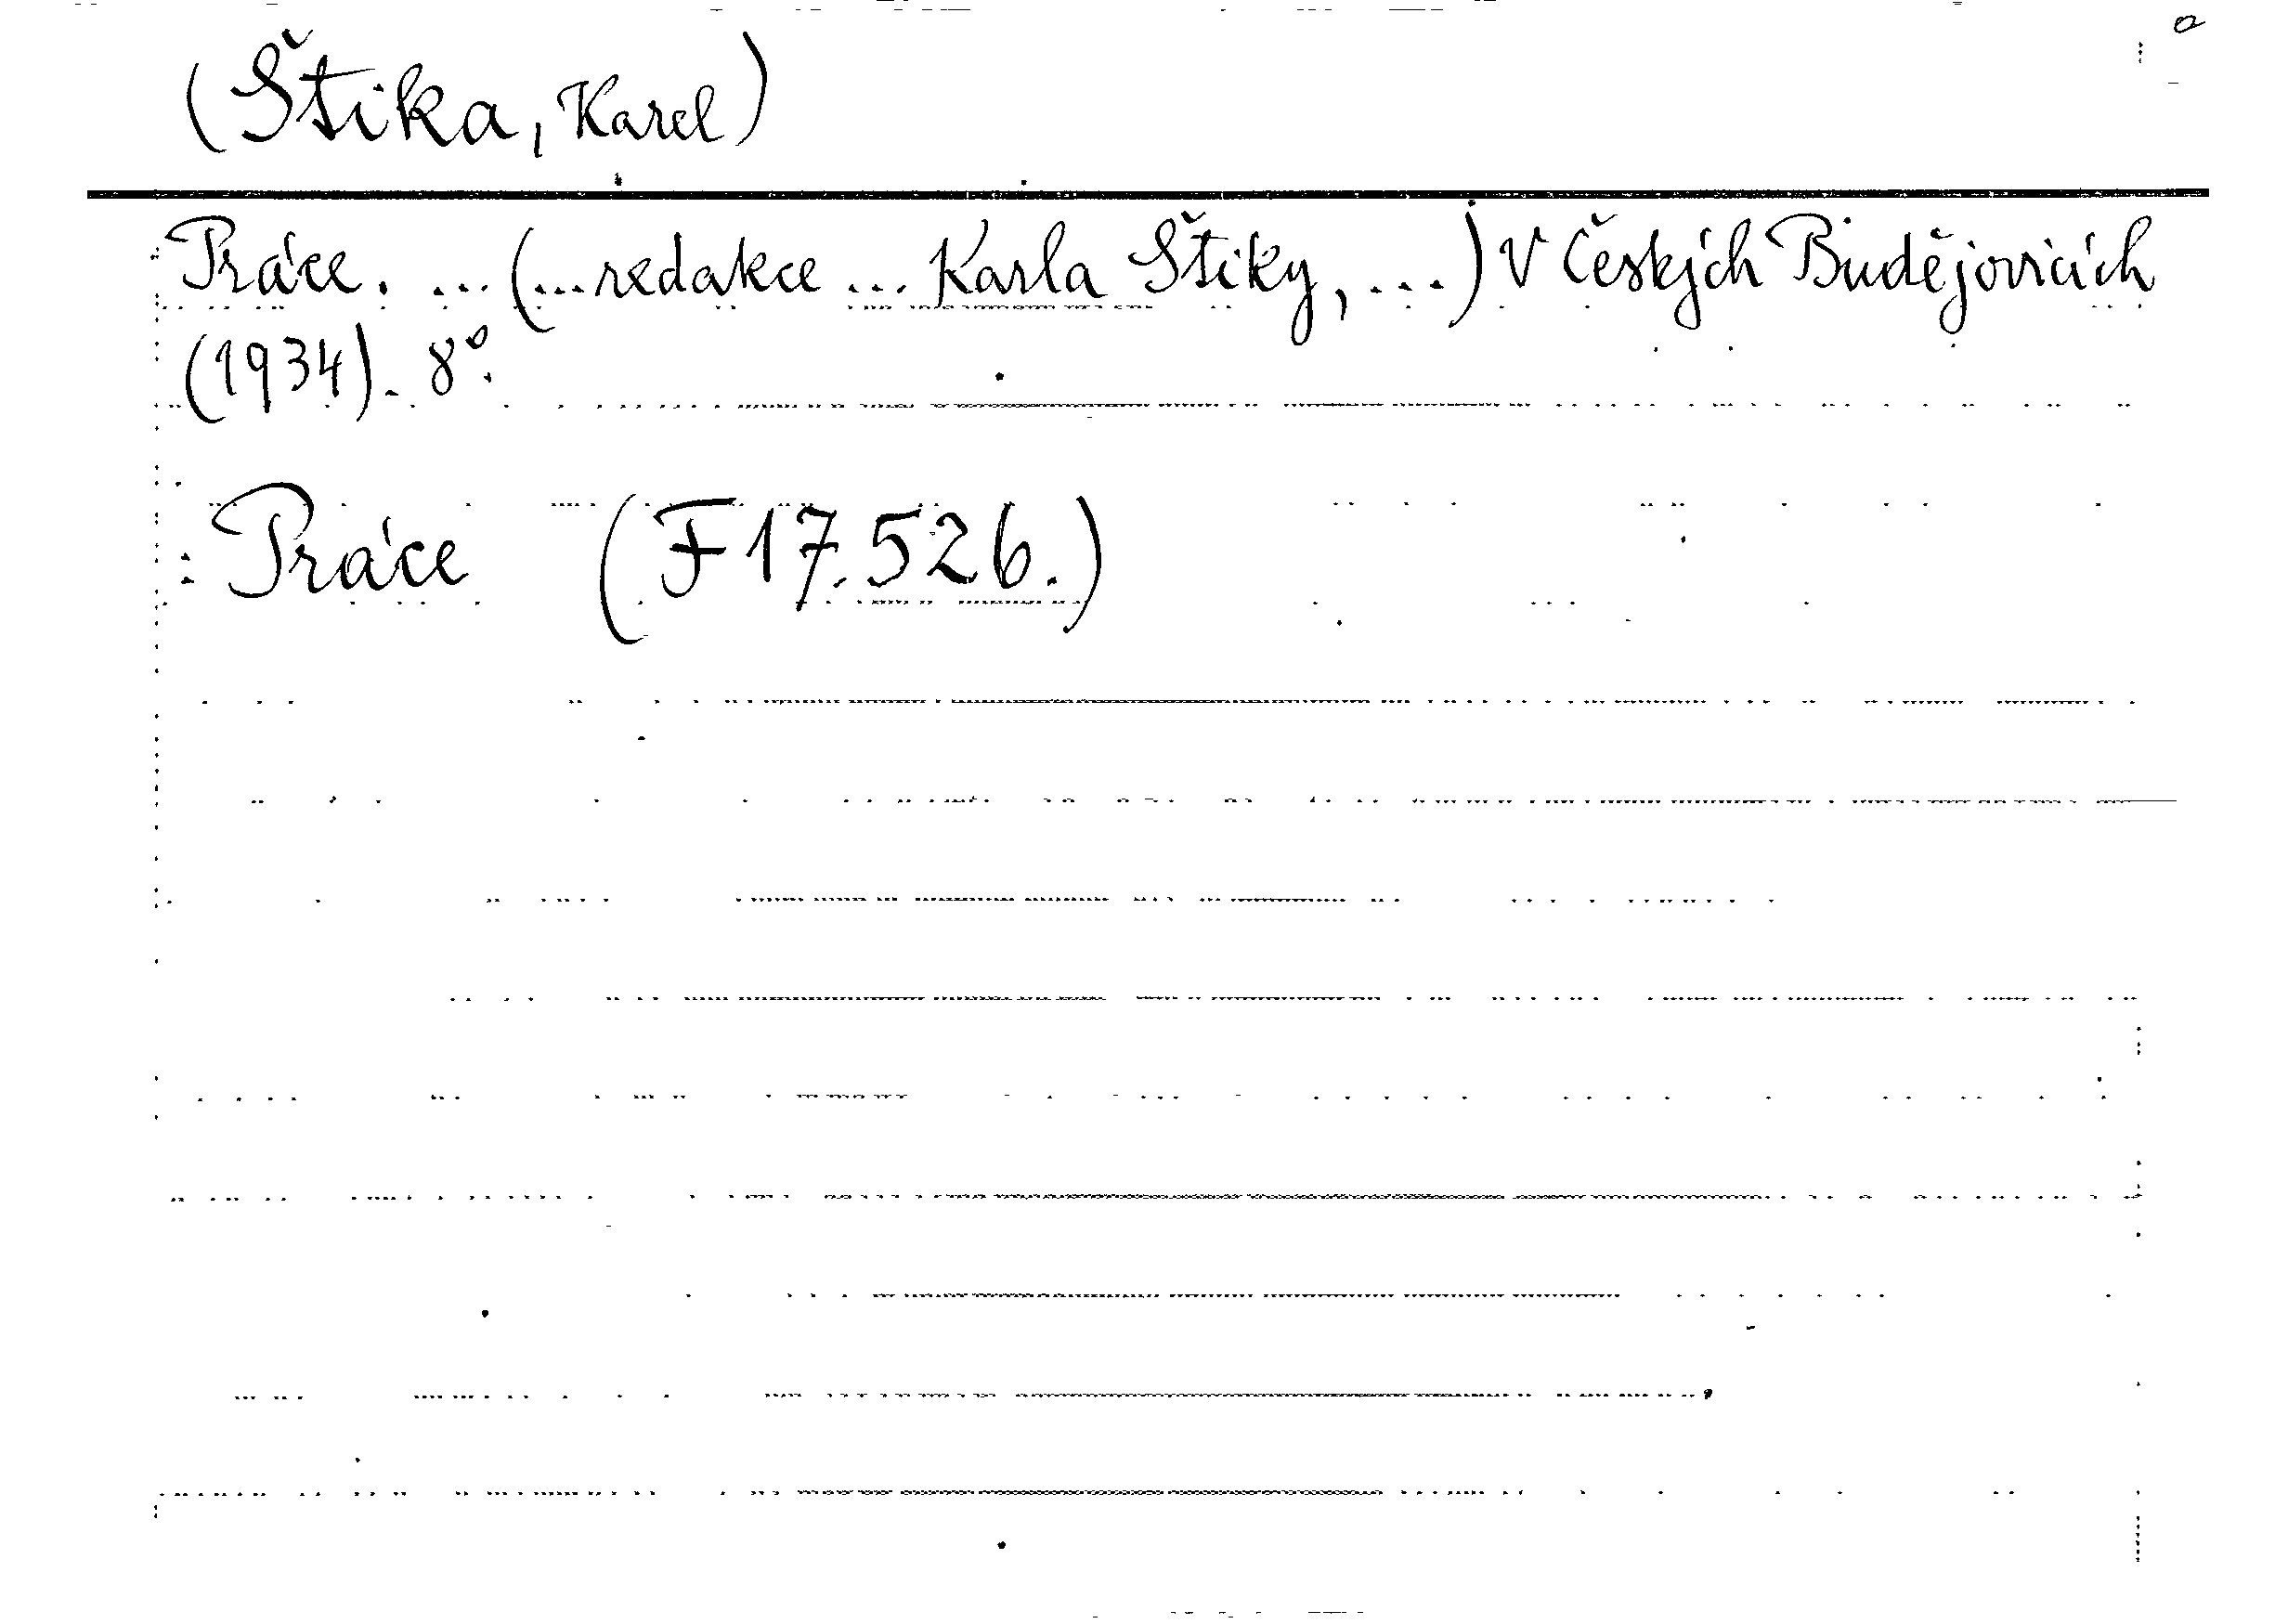 (Štika, Karel)
Práce. ... (... redakce ... Karla Štiky, ...) V Českých Budějovicích
(1934). 8°.
: Práce (F 17.526.)